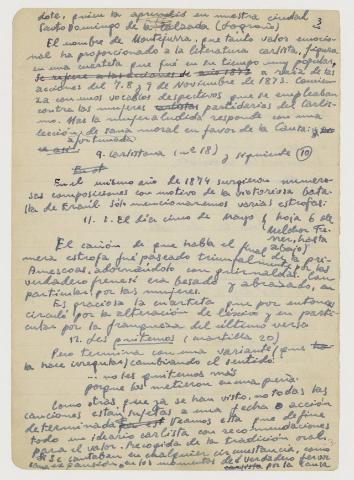 dote, quien la aprendió en nuestra ciudad
Santo Domingo de la Calzada (Logroño) 3
El nombre de Montejurra, que tanto valor emocio-
nal ha proporcionado a la literatura carlista, figura
en una cuarteta que fué en su tiempo muy popular,
a raiz de las
acciones del 7. 8 y 9 de Noviembre de 1873. Comien-
za con unos vocablos despectivos que se empleaban
contra las mujeres partidarias del Carlis-
mo. Mas la mujer aludida responde con una
lección de sana moral en favor de la Causa:
9. Carlistona (nº 18) y siguiente (10)
En el mismo año de 1874 surgieron numero-
sas composiciones con motivo de la victoriosa bata-
lla de Eraul. Sólo mencionaremos varias estrofas:
11. 2. El día cinco de Mayo (hoja 6 de
Melchor Fe-
rrer, hasta
abajo)
El cañón de que habla el final de la pri-
mera estrofa fué paseado triunfalmente por las
Amescoas, adornándolo con guirnaldas. Con
verdadero frenesí era besado y abrazado, en
particular por las mujeres.
Es graciosa la cuarteta que por entonces
circuló por la alteración de léxico y en parti-
cular por la franqueza del último verso
12. Los guiremos (cuartilla 20)
Pero termina con una variante (que
la hace irregular) cambiando el sentido:
... no les quitemos más
porque los metieron en una pería.
Como otras que ya se han visto, no todas las
canciones están sujetas a una fecha o acción
determinada. Veamos esta que define
todo un ideario carlista con recomendaciones
para el valor. Recogida de la tradición oral.
Se cantaban en cualquier circunstancia, como
expansión, en los momentos del verdadero fervor
por la Causa